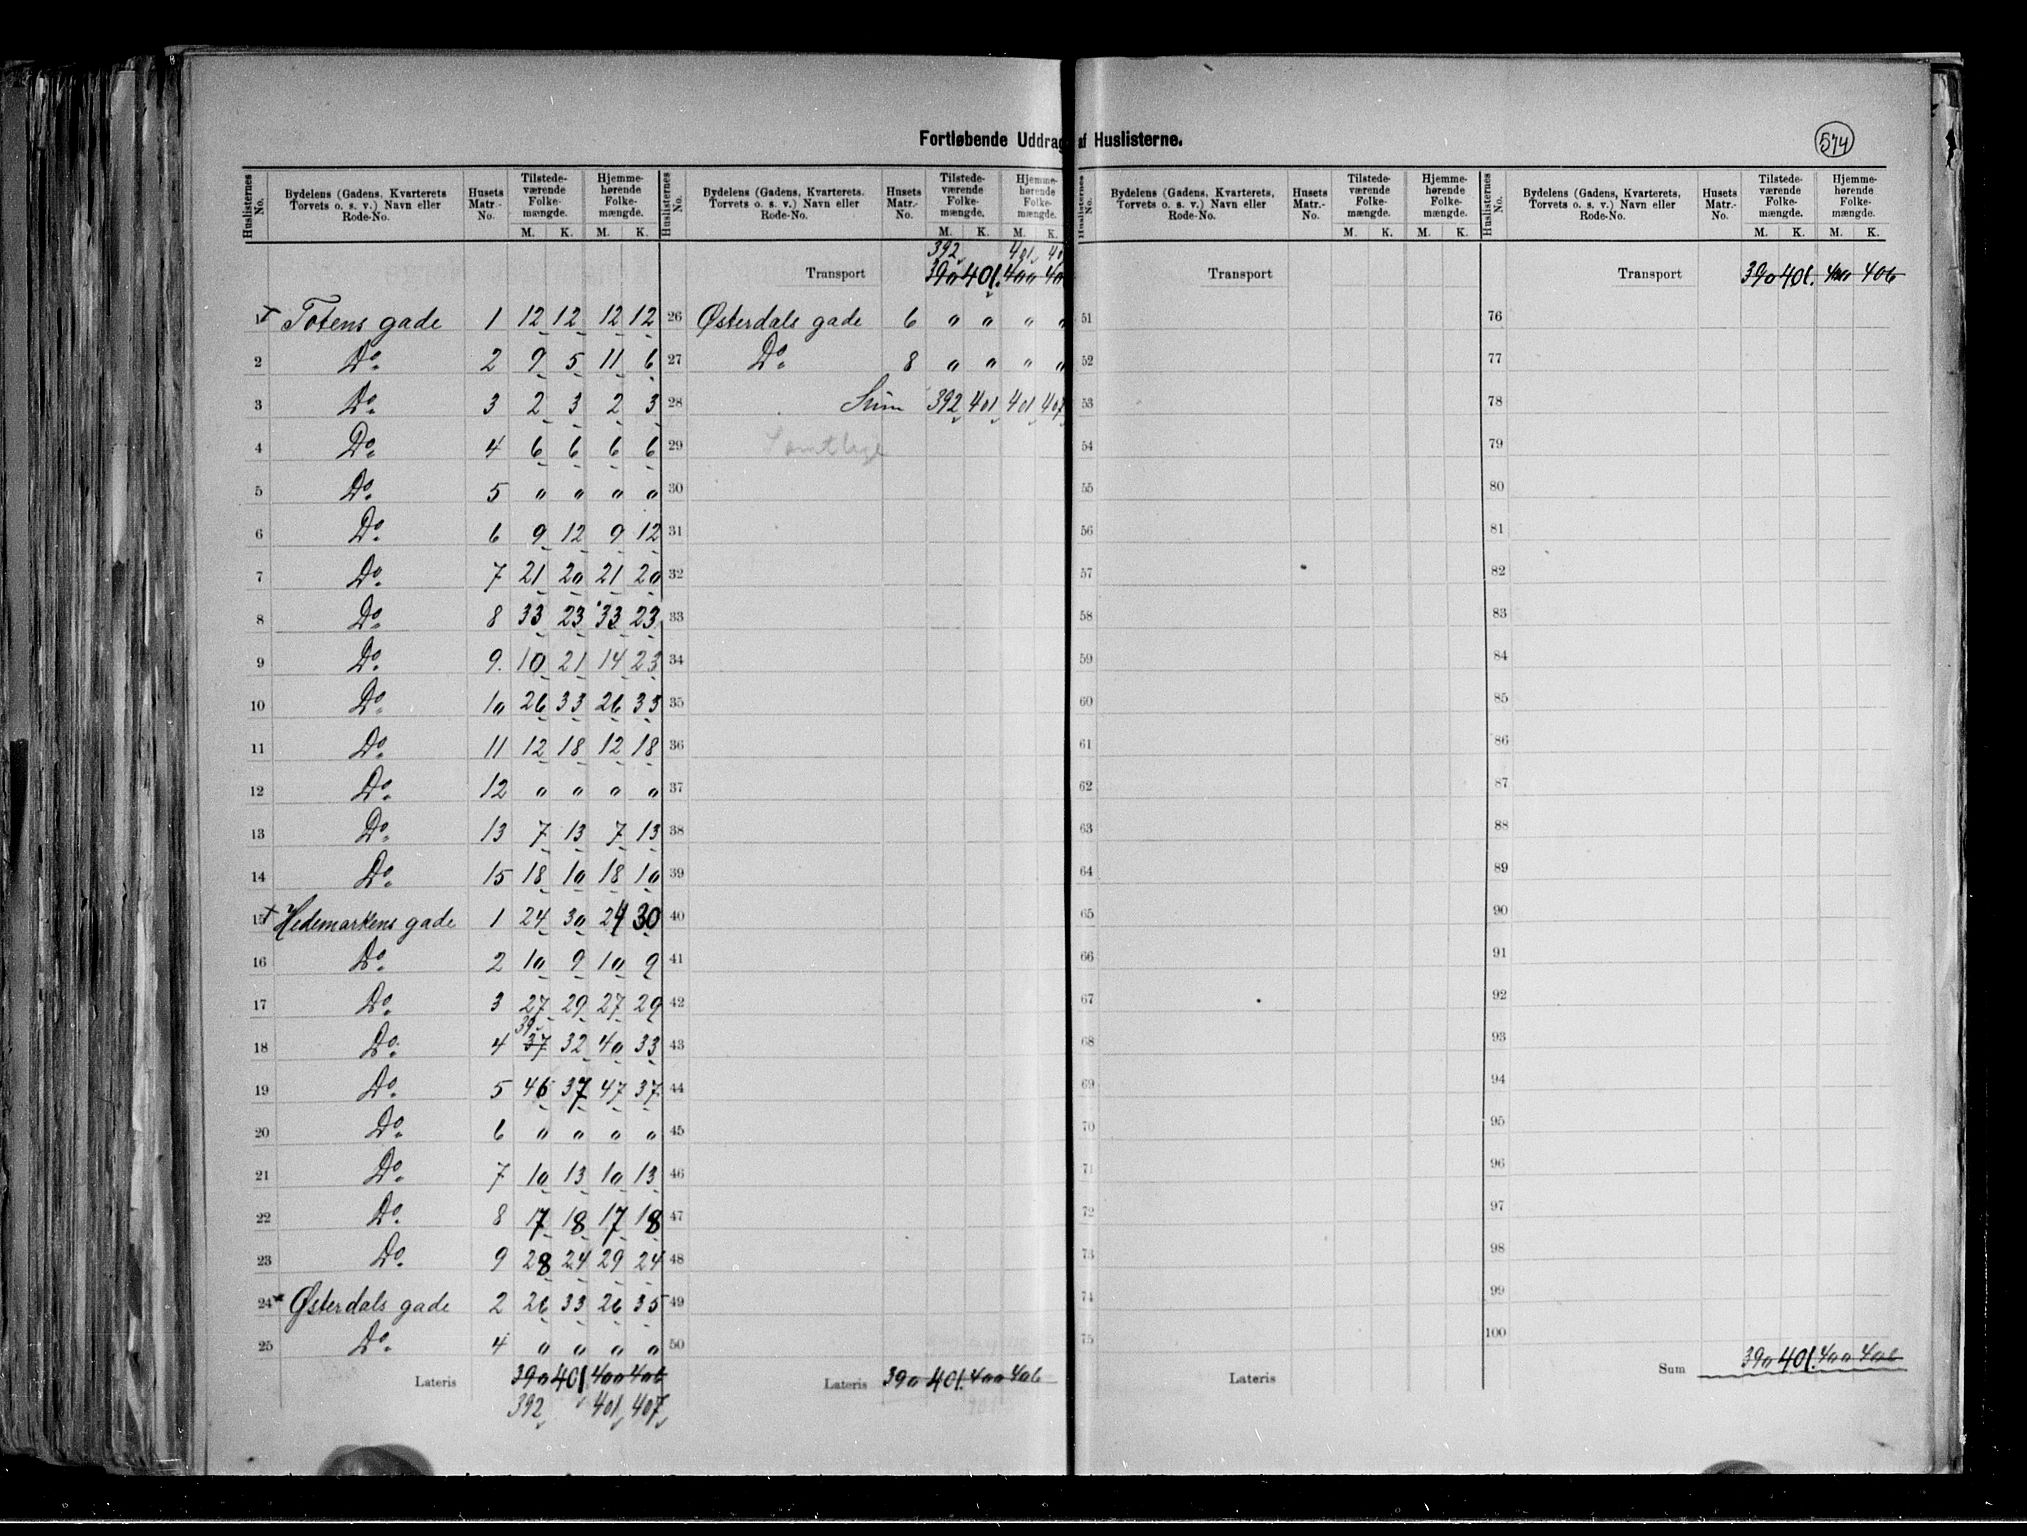 Fortløbende Uddrag af Huslisterne.
574
Huslisternes No. | Bydelens (Gadens, Kvarterets Torvets o. s. v.) Navn eller Rode-No. | Husets Matr.-No. | Tilstedeværende Folkemængde. M. K. | Hjemmehørende Folkemængde. M. K.
1 Totens gade 1 12 12 12 12
2 Do. 2 9 5 11 6
3 Do. 3 2 3 2 3
4 Do. 4 6 6 6 6
5 Do. 5 " " " "
6 Do. 6 9 12 9 12
7 Do. 7 21 20 21 20
8 Do. 8 33 23 33 23
9 Do. 9. 10 21 14 23
10 Do. 10 26 33 26 33
11 Do. 11 12 18 12 18
12 Do. 12 " " " "
13 Do. 13 7 13 7 13
14 Do. 15 18 10 18 10
15 Hedemarkens gade 1 24 30 24 30
16 Do. 2 10 9 10 9
17 Do. 3 27 29 27 29
39
18 Do. 4 37 32 40 33
19 Do. 5 46 37 47 37
20 Do. 6 " " " "
21 Do. 7 10 13 10 13
22 Do. 8 17 18 17 18
23 Do. 9 28 24 29 24
24 Østerdals gade 2 26 33 26 35
25 Do. 4 " " " "
Lateris 390 401 400 406
392 401 407
Huslisternes No. | Bydelens (Gadens, Kvarterets. Torvets o. s. v.) Navn eller Rode-No. | Husets Matr.-No. | Tilstedeværende Folkemængde. M. K. | Hjemmehørende Folkemængde. M. K.
392 401
Transport 390 401. 400
26 Østerdals gade 6 " " " "
27 Do. 8 " " " "
28 Sum 392 401 401 407
29 Samtlige
30
31
32
33
34
35
36
37
38
39
40
41
42
43
44
45
46
47
48
49
50
Lateris 390 401. 400 406
Huslisternes No. | Bydelens (Gadens, Kvarterets Torvets o. s. v.) Navn eller Rode-No. | Husets Matr.-No. | Tilstedeværende Folkemængde. M. K. | Hjemmehørende Folkemængde. M. K.
Transport
51
52
53
54
55
56
57
58
59
60
61
62
63
64
65
66
67
68
69
70
71
72
73
74
75
Lateris
Huslisternes No. | Bydelens (Gadens, Kvarterets Torvets o. s. v.) Navn eller Rode-No. | Husets Matr.-No. | Tilstedeværende Folkemængde. M. K. | Hjemmehørende Folkemængde. M. K.
Transport 390 401. 400 406
76
77
78
79
80
81
82
83
84
85
86
87
88
89
90
91
92
93
94
95
96
97
98
99
100
Sum 390 401. 400 406